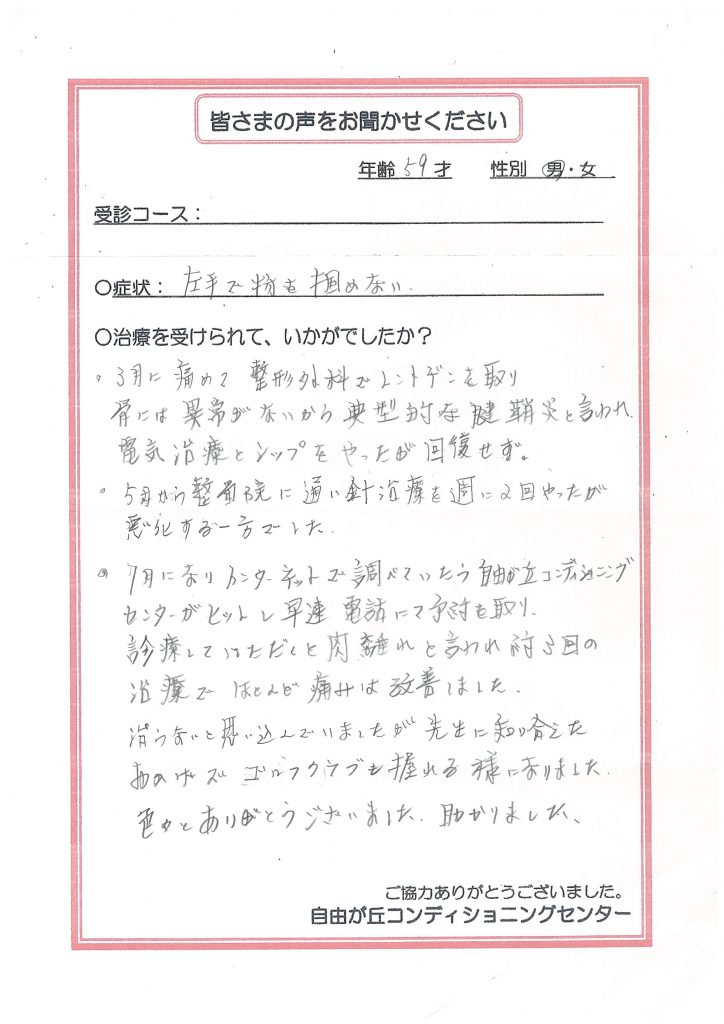 皆さまの声をお聞かせください
年齢 59 才 性別 男・女
受診コース：
○症状： 左手で物を掴めない.
○治療を受けられて、いかがでしたか？
・3月に痛めて 整形外科でレントゲンを取り
骨には異常がないから典型的な腱鞘炎と言われ
電気治療とシップをやったが回復せず。
・5月から整骨院に通い針治療を週に2回やったが
悪化する一方でした.
・7月になりインターネットで調べていたら自由が丘コンディショニング
センターがヒットし早速電話にて予約を取り.
診療していただくと肉離れと言われ 5回の
治療でほとんど痛みは改善しました.
治らないと思い込んでいましたが先生に知り合えた
おかげで ゴルフクラブも握れる様になりました.
色々とありがとうございました. 助かりました、
ご協力ありがとうございました。
自由が丘コンディショニングセンター